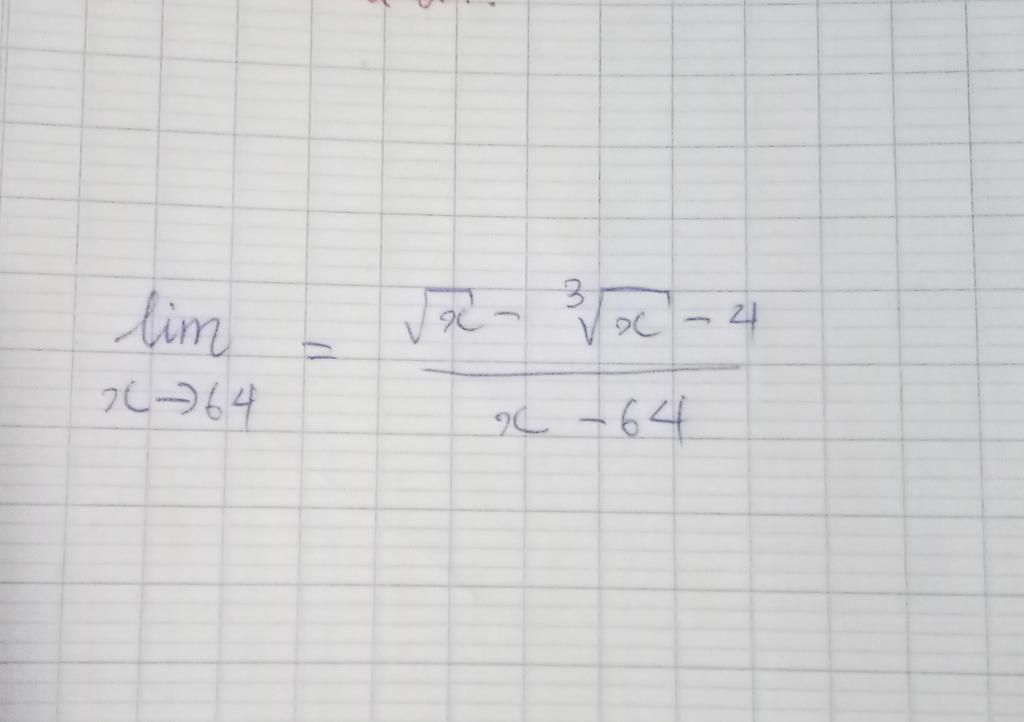 lim x→64 = (√x - ³√x - 4) / (x - 64)